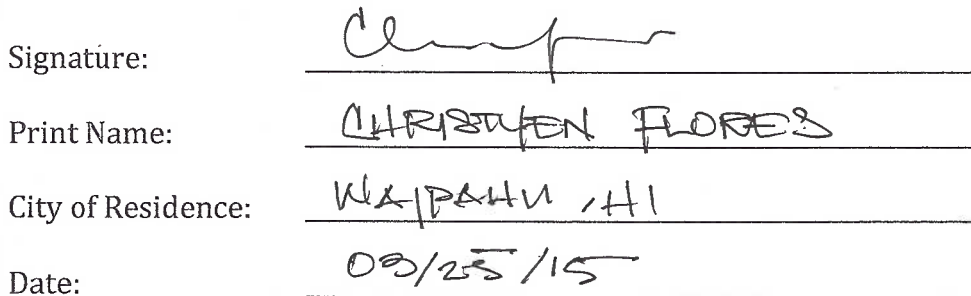 Signature:
Print Name: CHRISTYEN FLORES
City of Residence: WAIPAHU, HI
Date: 03/25/15